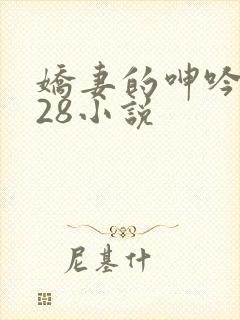 嬌妻的呻吟
28小說
尼基什